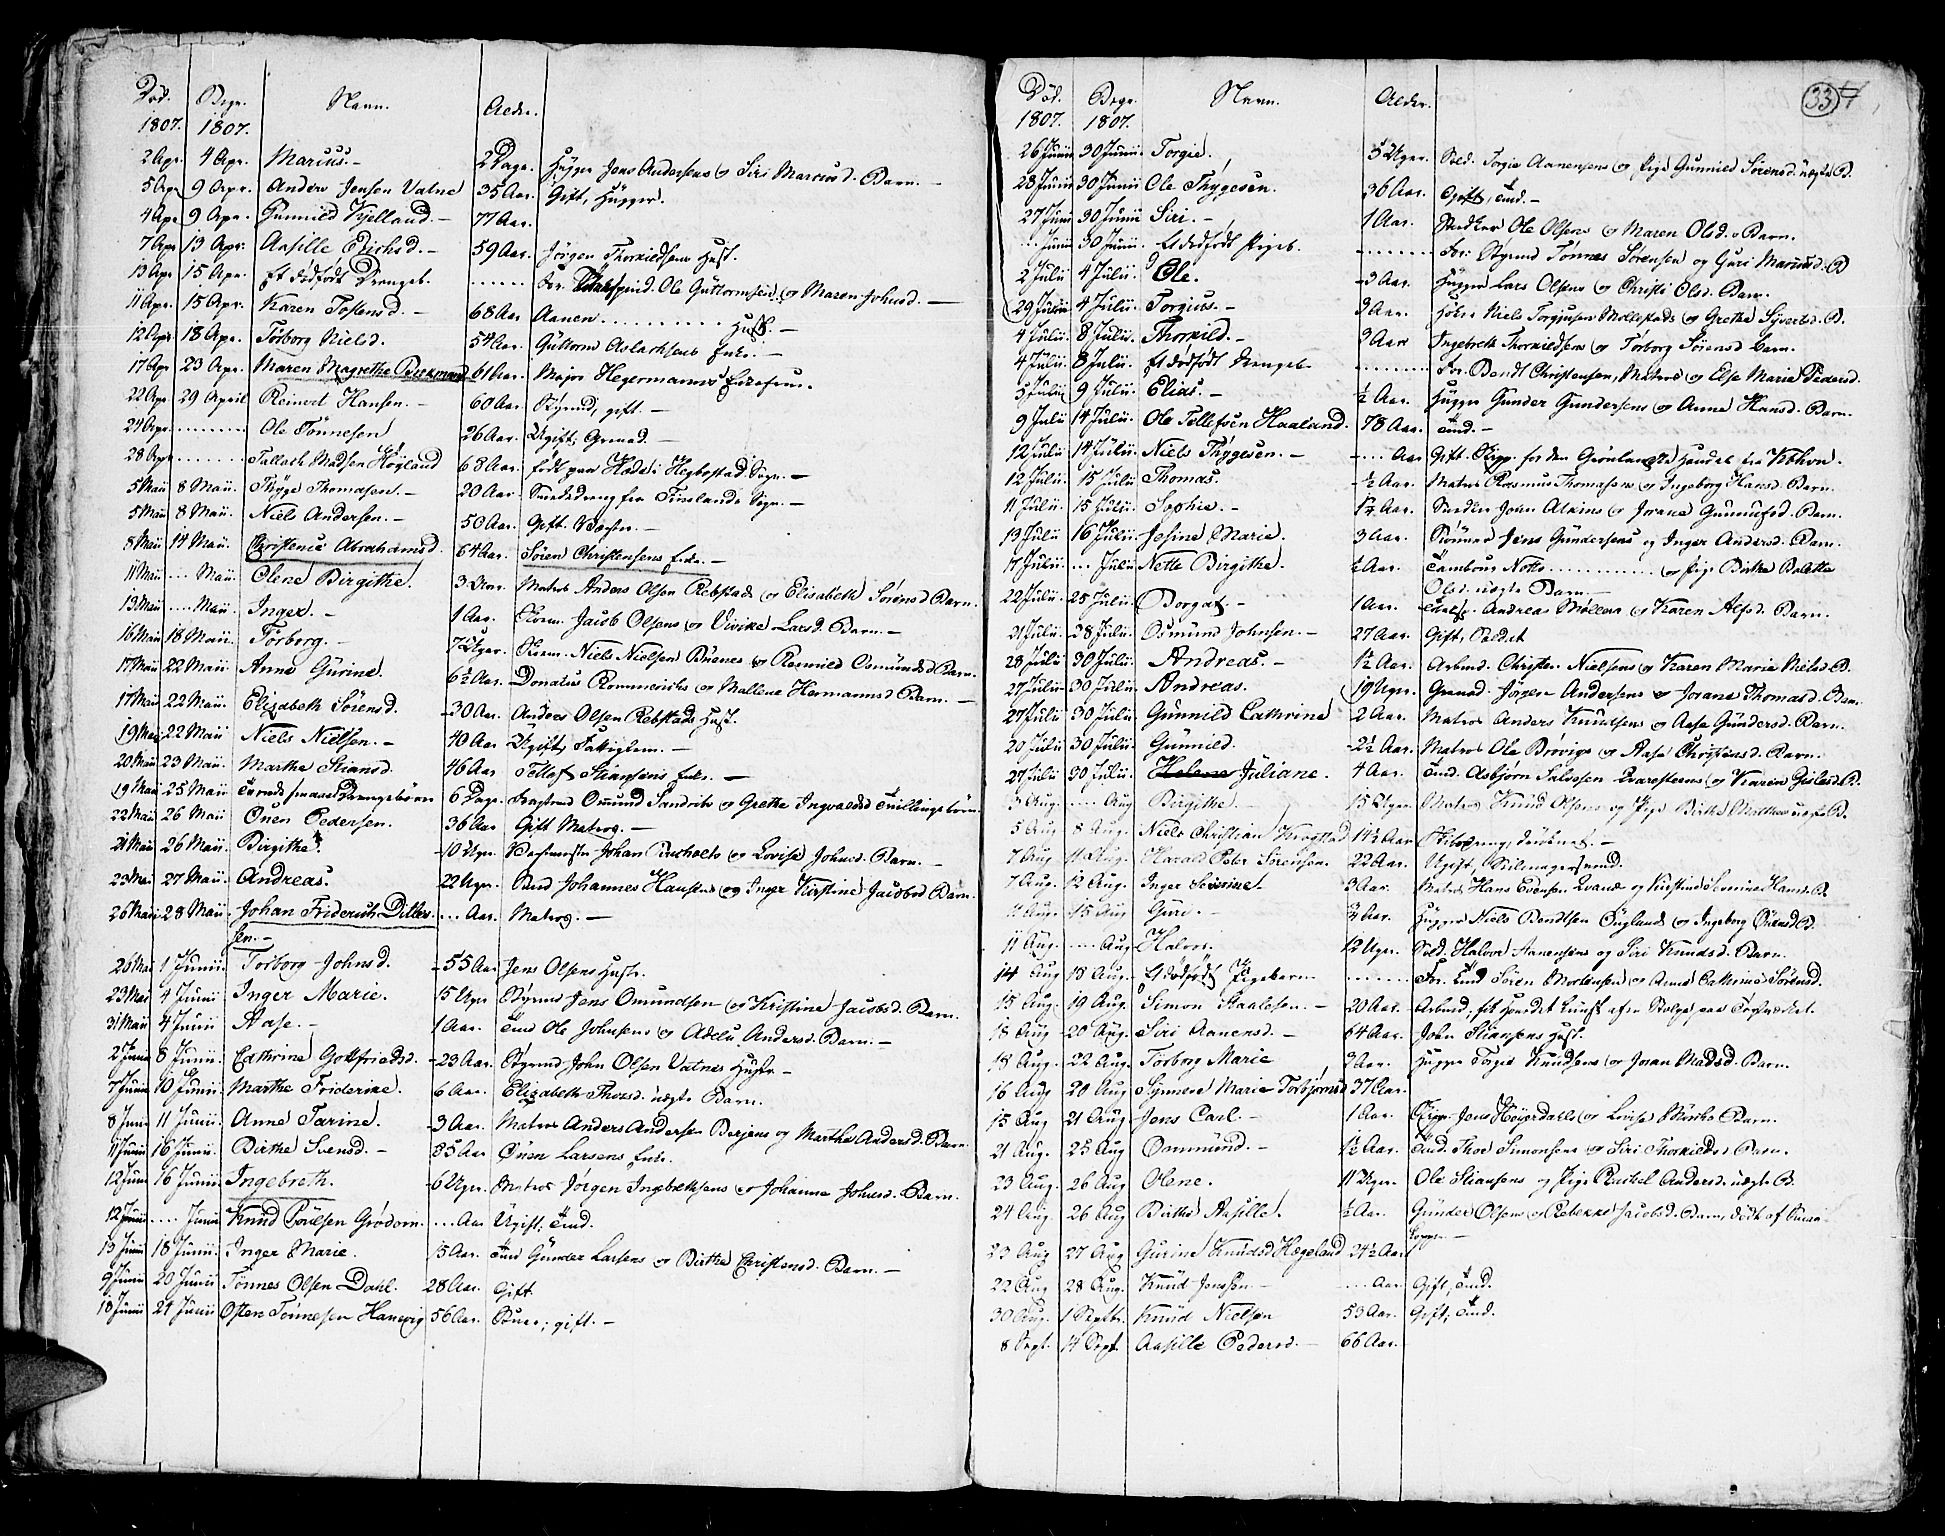 Död. Begr. Navn. Alder.
1807. 1807.
2 Apr. 4 Apr. Marius. - 2 Dage. Hugger Jens Andersens og Siri Marcusd. Barn. -
5 Apr. 9 Apr. Anders Jensen Vatne 35 Aar. Gift, Hugger.
4 Apr. 9 Apr. Gunnild Kjelland. - 77 Aar.
7 Apr. 13 Apr. Aasille Erichsd. - 59 Aar. Jörgen Thorkildsens Hust.
13 Apr. 15 Apr. Et dødfödt Drengeb. ...... For. Ole Guttormsen og Maren Johnsd. -
11 Apr. 15 Apr. Karen Tostensd. - 68 Aar Aanen .......... Hust. -
12 Apr. 18 Apr. Torborg Nielsd. 54 Aar. Guttorm Aslachsens Enke. -
17 Apr. 23 Apr. Maren Magrethe Beckmand 61 Aar. Major Hegermanns Enkefrue.
22 Apr. 29 April Reinert Hansen. - 60 Aar. gift. -
24 Apr. ......... Ole Tönnesen 26 Aar. Ugift, -
28 Apr. ....... Tallach Madsen Högland 68 Aar. født paa i Hegbostad Sogn. -
5 Maii 8 Maii. Thyge Thomasen. - 20 Aar. fra Finslands Sogn. -
5 Maii 8 Maii. Niels Andersen. - 50 Aar. Gift. -
8 Maii 14 Maii. Christence Abrahamsd. 64 Aar. Sören Christensens Enke. -
11 Maii ... Maii. Olene Birgithe. 3 Matros Anders Olsen Rebstads og Elisabeth Sörensd. Barn.
13 Maii .... Maii. Inger. - 1 Aar. Jacob Olsens og Vivike Larsd. Barn. -
16 Maii 18 Maii. Torborg. - 7 Uger. Niels Nielsen og Ronnild Osmundsd Barn.
17 Maii 22 Maii. Anne Gurine. 6½ Aar. Donatus Rommerichs og Mallene Hermannsd Barn. -
17 Maii 22 Maii. Elizabeth Sörensd. 30 Aar. Anders Olsen Rebstads Hust.
19 Maii 22 Maii Niels Nielsen. - 40 Aar Ugift, Fattiglem. -
20 Maii 23 Maii. Marthe Stiansd. 46 Aar Tellef Stiansens Enke. -
19 Maii 25 Maii Drengebörn 6 Dage. Omund Sandvik og Grethe Ingvaldsd Tvillingebørn.
22 Maii 26 Maii Ouen Pedersen. 36 Aar Gift Matros. -
21 Maii 26 Maii. Birgithe. 10 Uger. Johan og Lovise Johnsd. Barn. -
23 Maii 27 Maii. Andreas. 22 Uger. Johannes Hansens og Inger Kirstine Jacobsd Barn.
26 Maii 28 Maii. Johan Friderich Ditlev-
sen. - ... Aar. Matros. -
26 Maii 1 Junii. Torborg Johnsd. 55 Aar Jens Olsens Hustr.
23 Maii 4 Junii. Inger Marie. 15 Uger Jens Omundsen og Kristine Jacobsd. Barn.
31 Maii 4 Junii Aase. - 1 Aar. Ole Johnsens og Adelu Andersd. Barn. -
2 Junii 8 Junii. Cathrine Gottfriedsd. 23 Aar. John Olsen Vatnes Hustr. -
7 Junii 10 Junii. Marthe Friderike. 6 Aar. Elizabeth Thorsd. uægte Barn.
8 Junii 11 Junii. Anne Tarine. 3 Aar. Matros Anders Andersen Berjens og Marthe Andersd. Barn
11 Junii 16 Junii. Birthe Svensd. - 85 Aar Ouen Larsens Enke.
12 Junii 16 Junii. Ingebreth. 6 Uger. Matros Jörgen Ingebrethsens og Johanne Johnsd. Barn.
12 Junii .... Junii Knud Poulsen Grödom. ... Aar Ugift.
13 Junii 18 Junii. Inger Marie. 15 Aar. Gunder Larsens og Birthe Christensd. Barn. -
9 Junii 20 Junii Tönnes Olsen Dahl. 28 Aar. Gift
18 Junii 21 Junii Osten Tönnesen Hanevig 56 Aar. Buer, gift. -
33
Död. Begr. Navn. Alder.
1807. 1807.
26 Junii 30 Junii. Torgie. 5 Uger. Sold. Torgie Aanensens og Pige Gunnild Sörensd. uægte B.
28 Junii 30 Junii Ole Thygesen. 36 Aar. Gift, -
27 Junii 30 Junii Siri. - 1 Aar. Ole Olsens og Maren Olsd. Barn.
... Junii 30 Junii. Et dødfödt Pigeb. ........ For. Tönnes Sörensen og Guri Marcusd. B
2 Julii 4 Julii. Ole. 3 Aar. Hugger Lars Olsens og Christi Olsd. Barn.
29 Junii 4 Julii. Torgius. - 3 Aar. Niels Torgjusen Mollestads og Grethe Sivertsd. B.
4 Julii 8 Julii. Thorkild. - 3 Aar Ingebreth Thorkildsens og Torborg Sörensd Barn.
4 Julii. 8 Julii. Et dödfödt Drengeb. ......... For. Bendt Christensen, Matros og Else Maria Pedersd.
5 Julii 9 Julii. Elias. - ½ Aar. Hugger Gunder Gundersens og Anne Hansd. Barn.
9 Julii 14 Julii. Ole Tellefsen Haaland. 78 Aar. -
12 Julii. 14 Julii. Niels Thygesen. - .... Aar Gift. for den Grönlandske Handel fra Kbhvn.
12 Julii. 15 Julii Thomas. ½ Aar. Matros Rasmus Thomasens og Ingeborg Hansd. Barn.
11 Julii. 15 Julii. Sophie. - 1½ Aar. John Atkins og Jorane Gunnulfsd. Barn.
13 Julii 16 Julii. Jesine Marie. 3 Aar. Jens Gundersens og Inger Andersd. Barn.
17 Julii. ... Julii. Nette Birgithe. ½ Aar. Tambour Notto ............ og Pige Birthe Bolette
Olsd. uægte Barn -
22 Julii. 25 Julii. Borgat. - 1 Aar. Andreas Möllers og Karen Alfsd. Barn.
21 Julii. 28 Julii. Osmund Johnsen. - 27 Aar. Gift, Soldat
28 Julii 30 Julii. Andreas. - 1½ Aar. Arbmd. Christen Nielsens og Karen Maria Nielsd. B.
27 Julii 30 Julii. Andreas. 19 Uger. Jörgen Andersens og Jorane Thomasd. Barn.
27 Julii 30 Julii. Gunnild Cathrine 2 Aar. Matros Anders Knudsens og Aase Gundersd. Barn.
20 Julii 30 Julii. Gunnild. 2½ Aar. Matros Ole Brövigs og Aase Christensd. Barn.
27 Julii 30 Julii. Helene Juliane. 4 Aar. Asbjörn Salvesen Qvaresteens og Karen Gieslesd. B.
3 Aug. ..... Aug Birgithe. 15 Uger. Matros Knud Olsens og Pige Birthe uægte B.
5 Aug 8 Aug. Niels Christian Krogstad 14½ Aar druknet. -
7 Aug 11 Aug. Harald Peter Sörensen. 22 Aar. Ugift, Seilmagersvend.
7 Aug. 12 Aug. Inger Severine. 3 Aar. Matros Hans Evensen og Kirstine Severine Hansd. B.
11 Aug. 15 Aug Guri. - ¾ Aar. Hugger Niels Bendtsen Öuglands og Ingeborg Ouensd B.
11 Aug. ..... Aug Halvor. 12 Uger. Sold. Halvor Aanensens og Siri Knudsd. Barn.
14 Aug 18 Aug. Et dödfödt Pigebarn. ........ For. Sören Mortensen og Anne Cathrine Sörensd.
15 Aug. 19 Aug. Simon Staalesen. - 20 Aar. Arbmd,
18 Aug 20 Aug. Siri Aanensd. - 64 Aar. John Stiansens Hust.
18 Aug. 22 Aug. Torborg Marie 3 Aar. Hugger Torgie Knudsens og Joran Madsd. Barn.
16 Aug 20 Aug. Synneve Marie Torbjörnsd 37 Aar.
15 Aug 21 Aug. Jens Carl. - 1 Aar. Jens Höyerdals og Lovise Barn.
21 Aug. 25 Aug Ommund. - 1½ Aar. Thor Simonsens og Siri Thorkildsd Barn.
23 Aug 26 Aug Olene. 11 Uger. Ole Stiansens og Pige Rachel Andersd. uægte B.
24 Aug. 26 Aug Birthe Aasille. ½ Aar. Gunder Olsens og Rebekka Jacobsd. Barn, död af
23 Aug 27 Aug Gurine Knudsd Hægeland 24½ Aar
22 Aug 28 Aug. Knud Jensen - .... Aar Gift,
30 Aug. 1 Septbr. Knud Nielsen 53 Aar. Gift,
8 Sept. 14 Sept Aasille Pedersd. - 66 Aar.